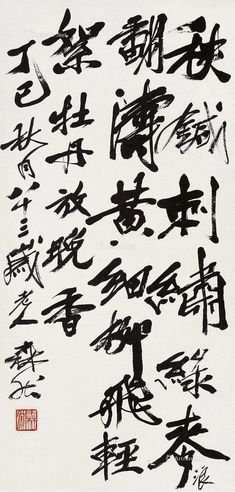 秧鍼刺繡綠麥浪
翻濤黃細柳飛輕
絮牡丹放晚香
丁巳秋月八十三歲老人森然